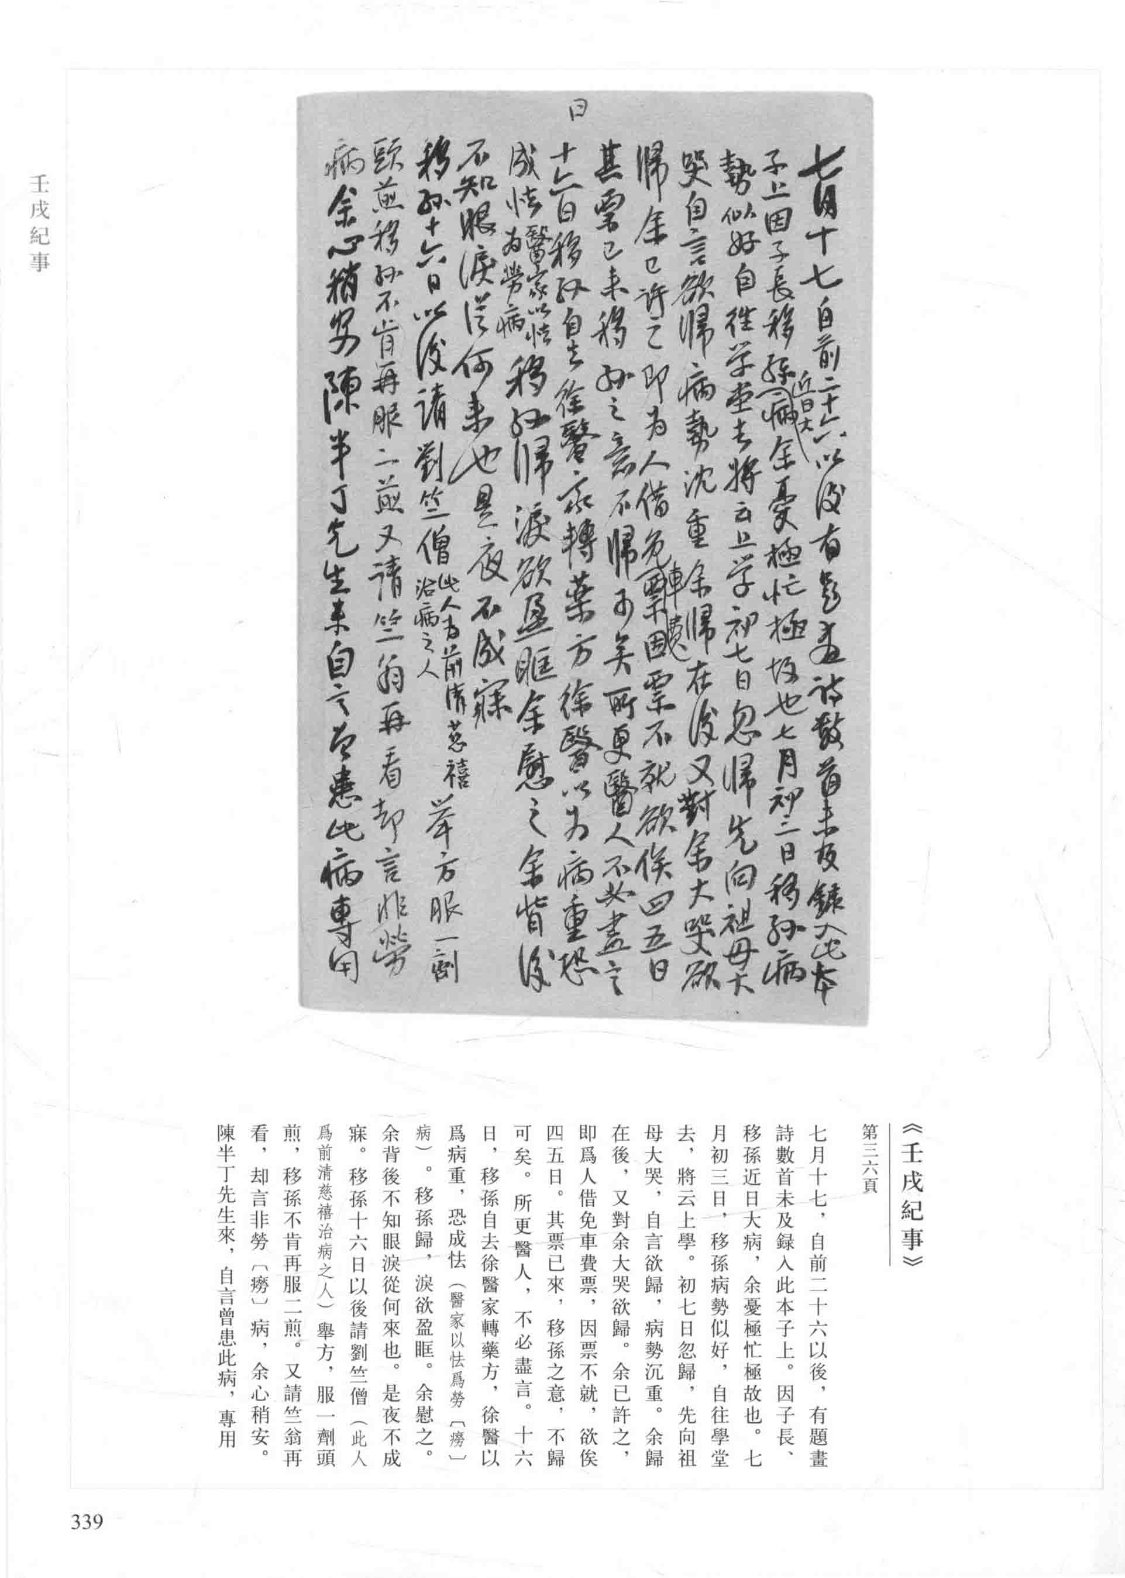 壬戌紀事
日
七月十七自前二十六以後有題畫詩數首未及録入此本
子上因子長移孫近日大病余憂極忙極故也七月初三日移孫病
勢似好自往学堂去將云上学初七日忽歸先向祖母大
哭自言欲歸病勢沈重余歸在後又對余大哭欲
歸余已許之即为人借免車費票因票不就欲俟四五日
其票已来移孫之意不歸可矣所更醫人不必盡言
十六日移孫自去徐醫家轉藥方徐醫以为病重恐
成怯醫家以怯为勞病移孫歸淚欲盈眶余慰之余背後
不知眼淚從何来也是夜不成寐
移孫十六日以後請劉竺僧此人为前清慈禧治病之人举方服一劑
頭煎移孫不肯再服二煎又請竺翁再看却言非勞
病余心稍安陳半丁先生来自言曾患此病專用
《壬戌紀事》
第三六頁
七月十七，自前二十六以後，有題畫
詩數首未及録入此本子上。因子長、
移孫近日大病，余憂極忙極故也。七
月初三日，移孫病勢似好，自往學堂
去，將云上學。初七日忽歸，先向祖
母大哭，自言欲歸，病勢沉重。余歸
在後，又對余大哭欲歸。余已許之，
即爲人借免車費票，因票不就，欲俟
四五日。其票已來，移孫之意，不歸
可矣。所更醫人，不必盡言。十六
日，移孫自去徐醫家轉藥方，徐醫以
爲病重，恐成怯（醫家以怯爲勞〔癆〕
病）。移孫歸，淚欲盈眶。余慰之。
余背後不知眼淚從何來也。是夜不成
寐。移孫十六日以後請劉竺僧（此人
爲前清慈禧治病之人）舉方，服一劑頭
煎，移孫不肯再服二煎。又請竺翁再
看，却言非勞〔癆〕病，余心稍安。
陳半丁先生來，自言曾患此病，專用
339